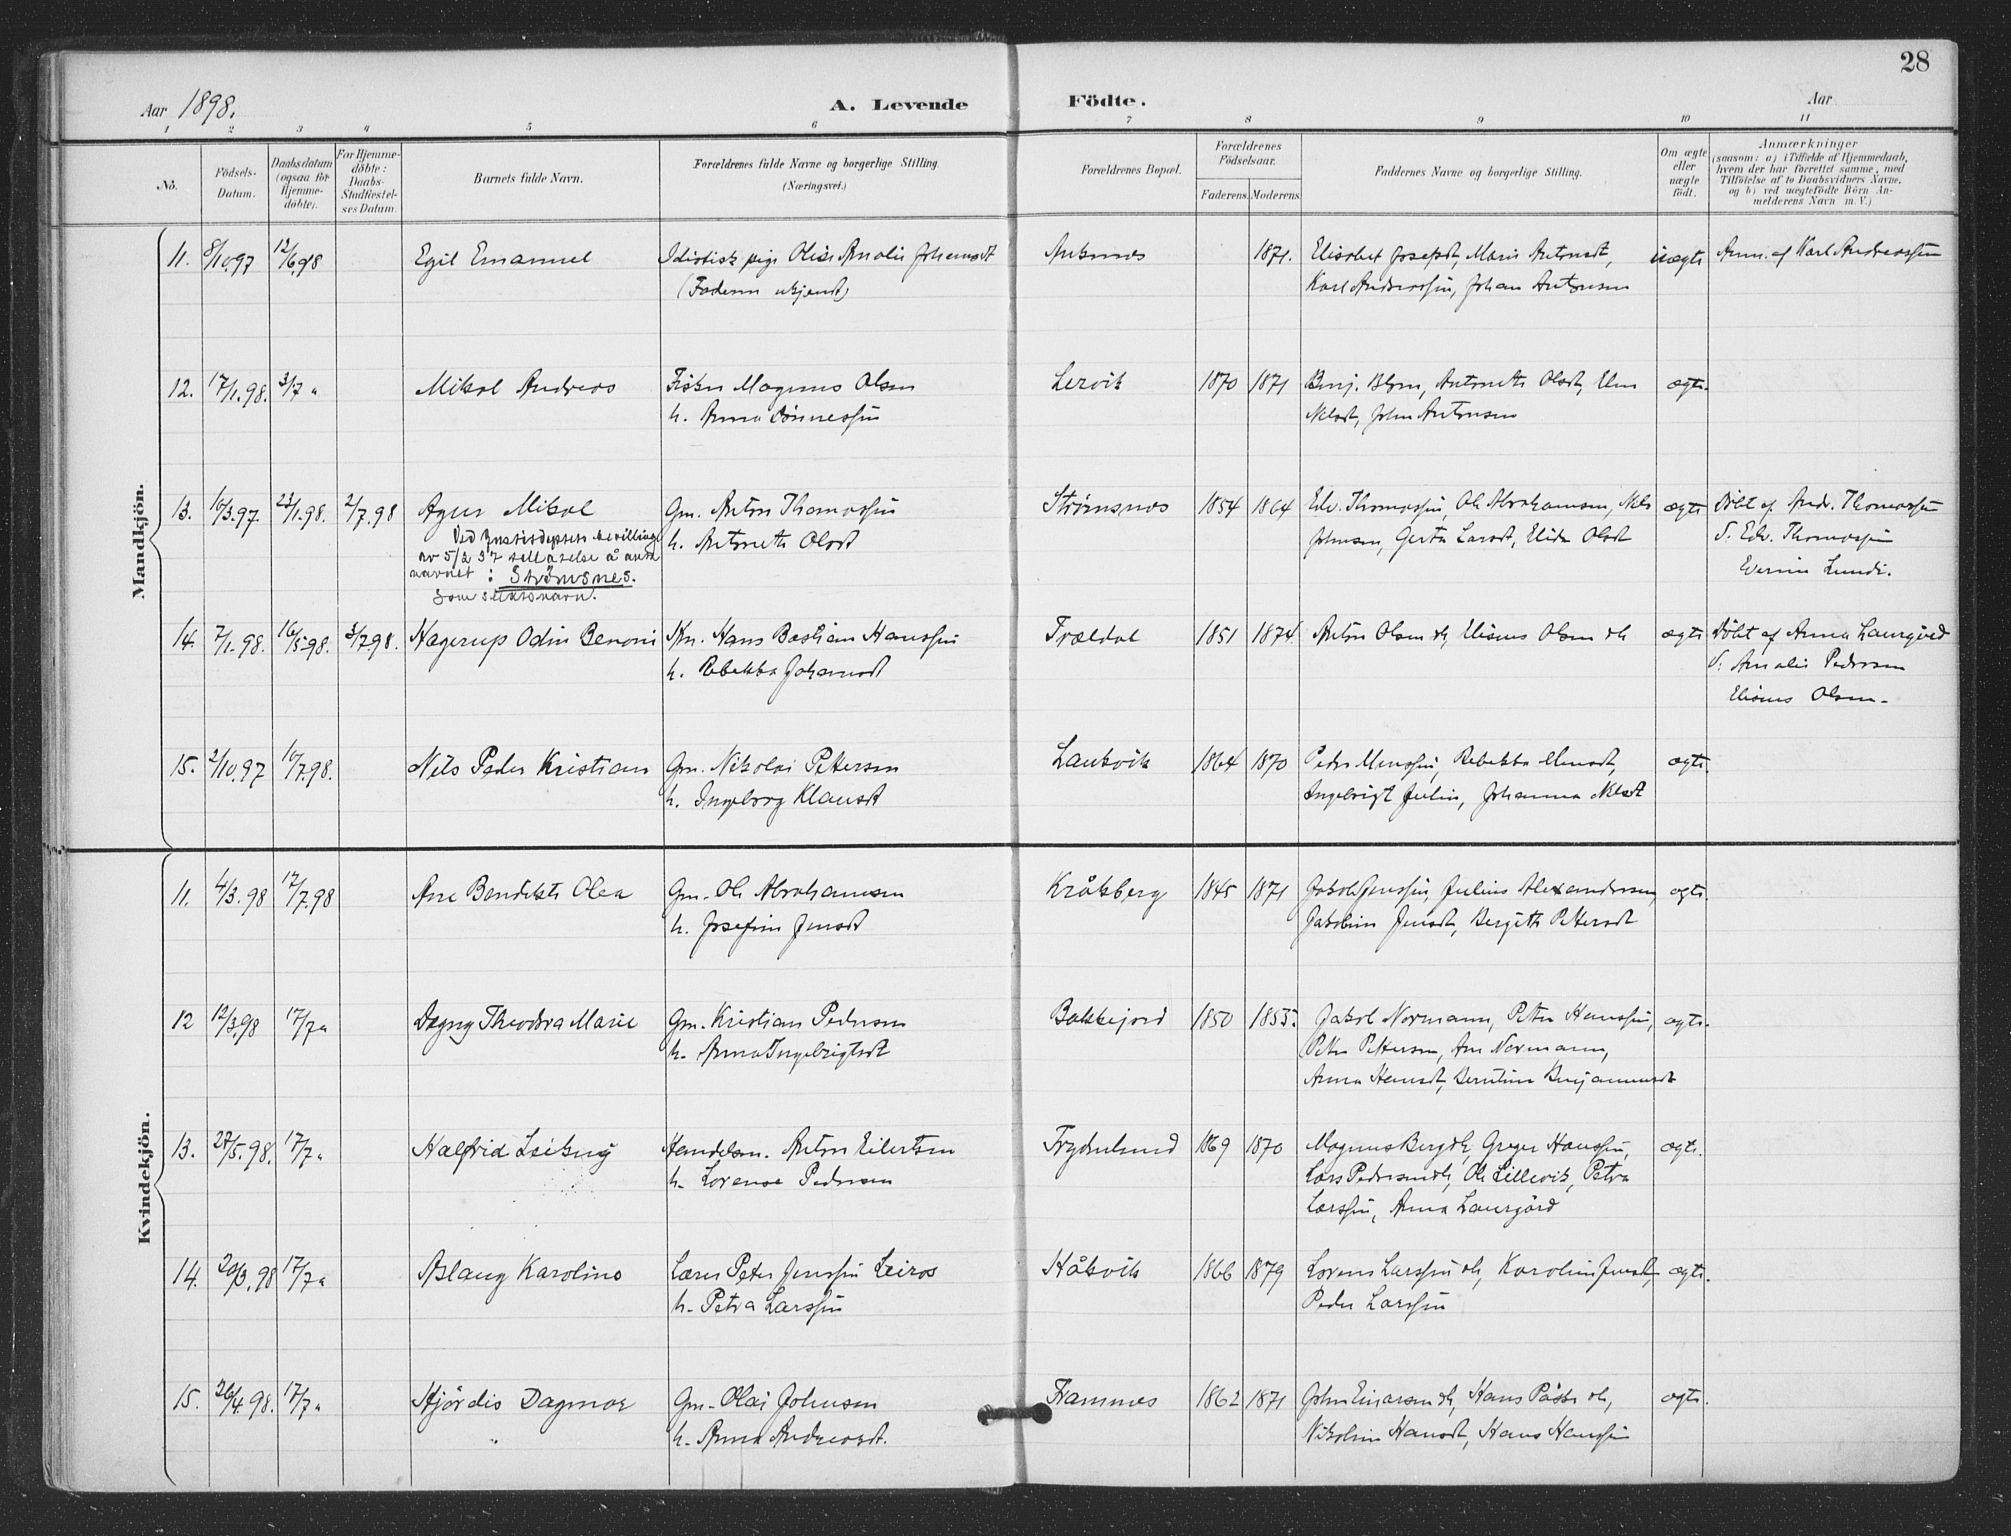 28
Aar 1898.
A. Levende Födte.
Aar
1 2 3 4 5 6 7 8 9 10 11
No.
Födsels-Datum.
Daabsdatum (ogsaa for Hjemme-döbte).
For Hjemme-döbte: Daabs-Stadfæstel-ses Datum.
Barnets fulde Navn.
Forældrenes fulde Navne og borgerlige Stilling
(Næringsvei.)
Forældrenes Bopæl.
Forældrenes Födselsaar.
Faderens. Moderens.
Faddernes Navne og borgerlige Stilling.
Om ægte eller uægte födt.
Anmærkninger
(saasom: a) i Tilfælde af Hjemmedaab,
hvem der har forrettet samme, med
Tilföielse af to Daabsvidners Navne,
og b) ved uægtefödte Börn An-
melderens Navn m. V.)
Mandkjön.
11. 8/10 97 12/6 98 Egil Emanuel Idiotisk pige Olise Amalie Johansdt Ankenes 1871. Elisabet Josefsdt, Marie Antonsdt, uægte Anm. af Karl Andreassen
(Faderen ukjendt) Karl Andreassen, Johan Antonsen
12. 17/1 98. 3/7 " Mikal Andreas Fisker Magnus Olsen Lervik 1870 1871 Benj. Blom, Antonette Olsdt, Elen ægte.
h. Anna Dønnessen Nilsdt, John Antonsen
13. 10/3 97. 23/1 98. 2/7 98 Agur Mikal Gm. Anton Thomassen Strømsnes 1854 1864 Edv. Thomassen, Ole Abrahamsen, Nils ægte Døbt af Andr. Thomassen
Ved Justisdeptets bevilling h. Antonette Olsdt Johnsen, Gerta Larsdt, Elida Olsdt F. Edv. Thomassen
av 5/2 37 tillatelse å anta
navnet: Strömsnes. Lundi.
som slektsnavn.
14. 7/1 98. 16/5 98. 3/7 98. Hagerup Odin Benoni Hans Bastian Hanssen Trældal 1851 1874. Anton Olsen Elisæus Olsen ægte Døbt af Anna Laurgård
h. Rebekka Johansdt F. Amalie Pedersen
Elisæus Olsen.
15. 2/10 97 10/7 98. Nils Peder Kristian Gm. Nikolai Pettersen Laukvik 1864 1870 Peder Monssen, Rebekka Monsdt, ægte.
h. Ingeborg Klausdt Ingebrigt Julin, Johanna Nilsdt
Kvindekjön.
11. 4/3 98 17/7 98 Ane Bendikte Olea Gm. Ole Abrahamsen Kråkberg 1845 1871 Jakob Jenssen, Julius Alexandersen, ægte.
h. Josefine Jensdt Jakobine Jensdt, Bergitte Pettersdt
12 12/3 98 17/7 " Dagny Theodora Marie Gm. Kristian Pedersen Bakkejord 1850 1853. Jakob Normann, Petter Hanssen, ægte.
h. Anna Ingebrigtsdt Peter Pettersen, Ane Normann,
Anna Hansdt, Berntine Benjaminsdt
13. 27/5 98. 17/7 " Halfrid Leikny Handelsm. Anton Eilertsen Frydenlund 1869 1870 Magnus Berg, Greger Hanssen, ægte.
h. Lorense Pedersen Lars Pedersen, Ole Lillevik, Petra
Larssen, Anna Laurgård
14. 20/3 98 17/7 " Aslaug Karoline Lærer Peter Jenssen Leiros Håkvik 1866 1879 Lorens Larssen Karoline Jensdt, ægte.
h. Petra Larssen Peder Larssen
15. 26/4 98. 17/7 " Hjördis Dagmar Gm. Olai Johnsen Framnes 1862 1871 John Einarsen Hans ægte.
h. Anna Andreasdt. Nikoline Hansdt, Hans Hanssen